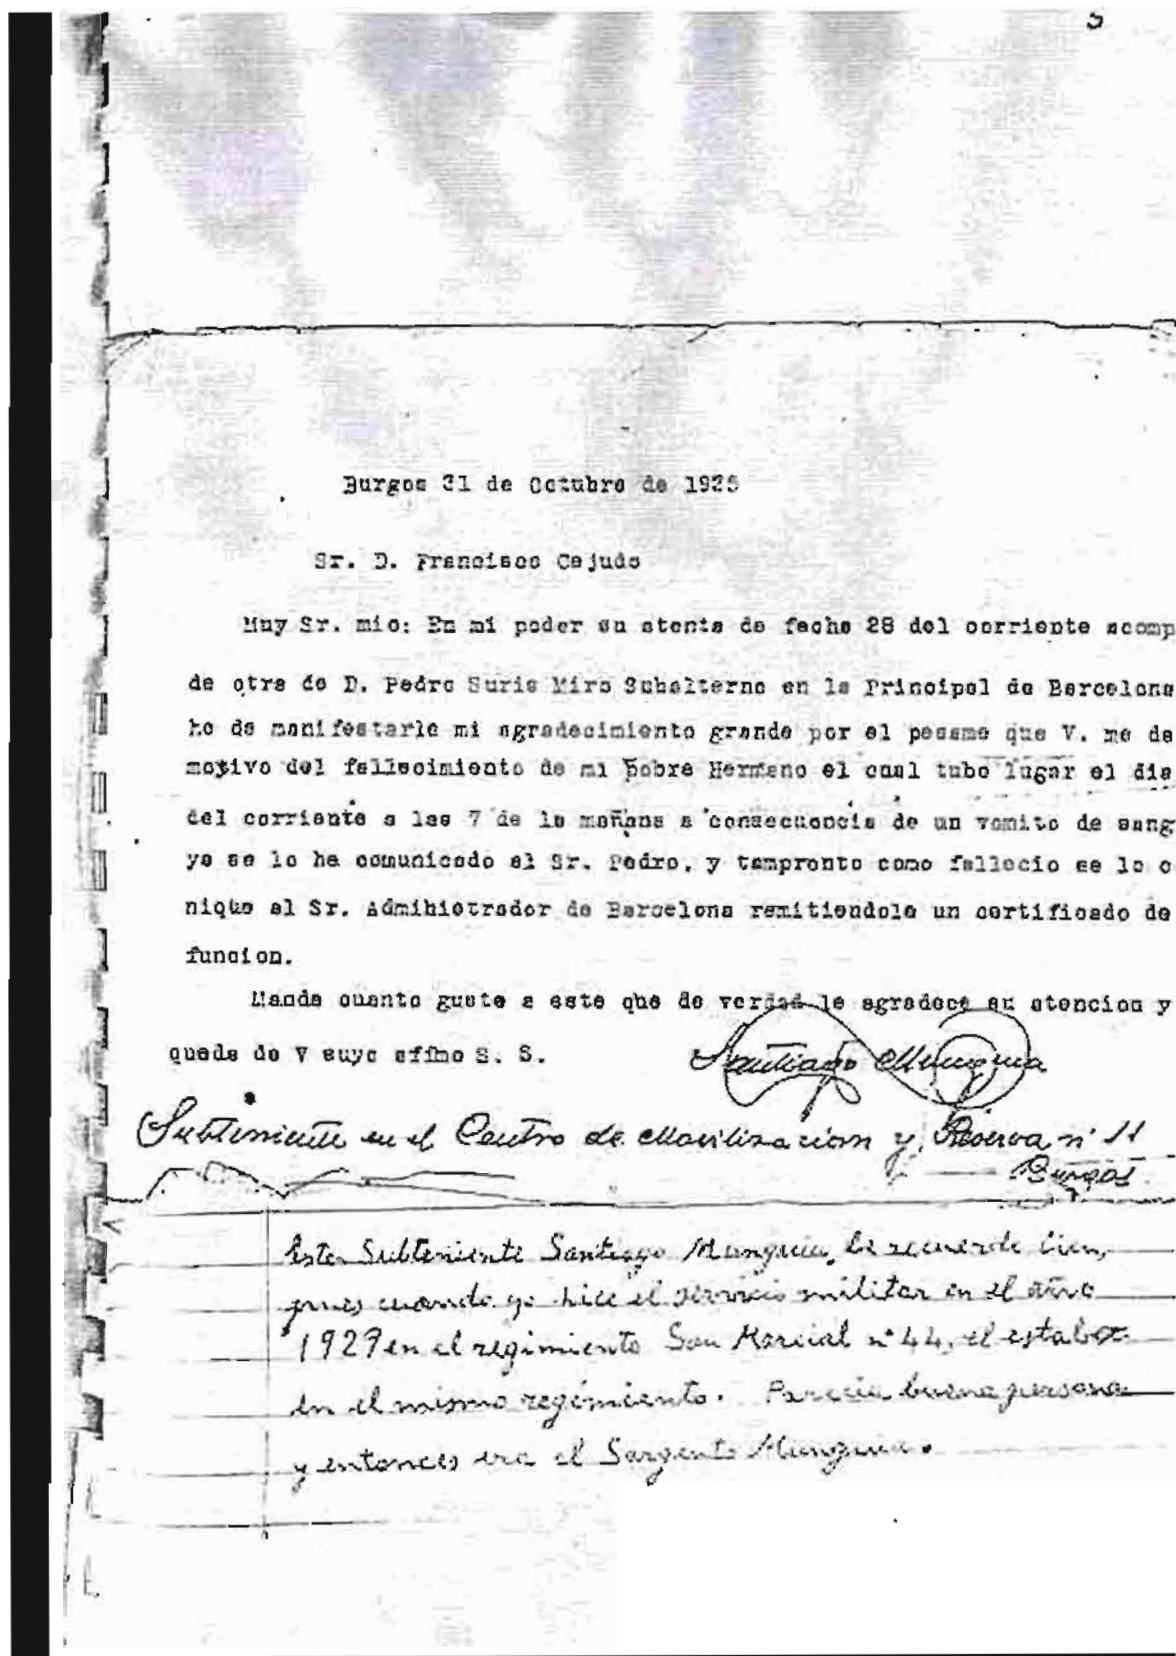 Burgos 31 de Octubre de 1935
Sr. D. Francisco Cejudo
Muy Sr. mio: En mi poder su atenta de fecha 28 del corriente acomp
de otra de D. Pedro Suris Miro Subalterno en la Principal de Barcelona
he de manifestarle mi agradecimiento grande por el pesame que V. me da
motivo del fallecimiento de mi pobre Hermano el cual tubo lugar el dia
del corriente a las 7 de la mañana a consecuencia de un vomito de sang
ya se lo ha comunicado el Sr. Pedro, y tampronto como fallecio se lo c
nique al Sr. Admihistrador de Barcelona remitiendole un certificado de
funcion.
Mande cuanto guste a este que de verdad le agradece su atencion y
queda de V suyo affmo S. S.
Santiago Munguia
Subteniente en el Centro de Movilizacion y Reserva nº 11
Burgos.
Este Subteniente Santiago Munguia, le recuerdo bien,
pues cuando yo hice el servicio militar en el año
1929 en el regimiento San Marcial nº 44, el estaba
en el mismo regimiento. Parecia buena persona
y entonces era el Sargento Munguia.